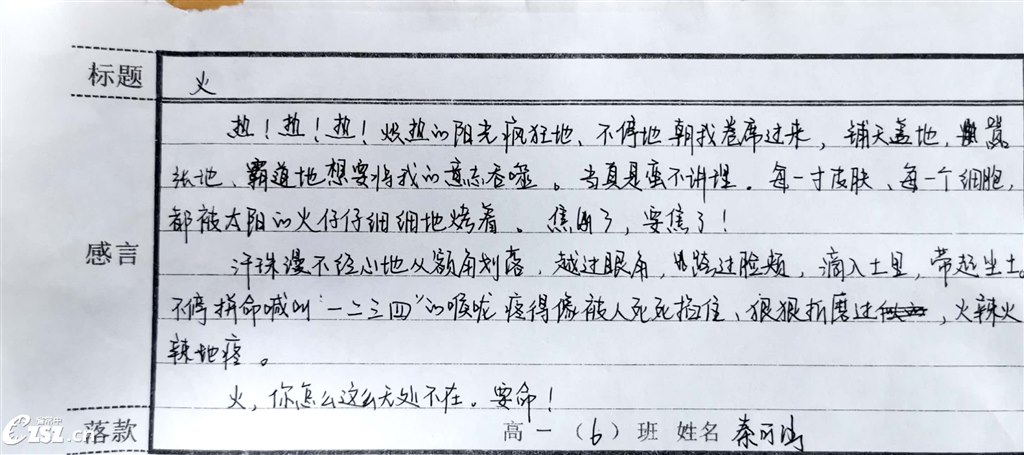 标题 火
热！热！热！炽热的阳光疯狂地、不停地朝我卷席过来，铺天盖地，嚣
张地、霸道地想要将我的意志吞噬。当真是蛮不讲理。每一寸皮肤、每一个细胞，
都被太阳的火仔仔细细地烤着。焦了，要焦了！
感言
汗珠漫不经心地从额角划落，越过眼角，路过脸颊，滴入土里，带起尘土。
不停拼命喊叫“一二三四”的喉咙疼得像被人死死掐住、狠狠折磨过，火辣火
辣地疼。
火，你怎么这么无处不在。要命！
落款 高一（6）班 姓名 秦